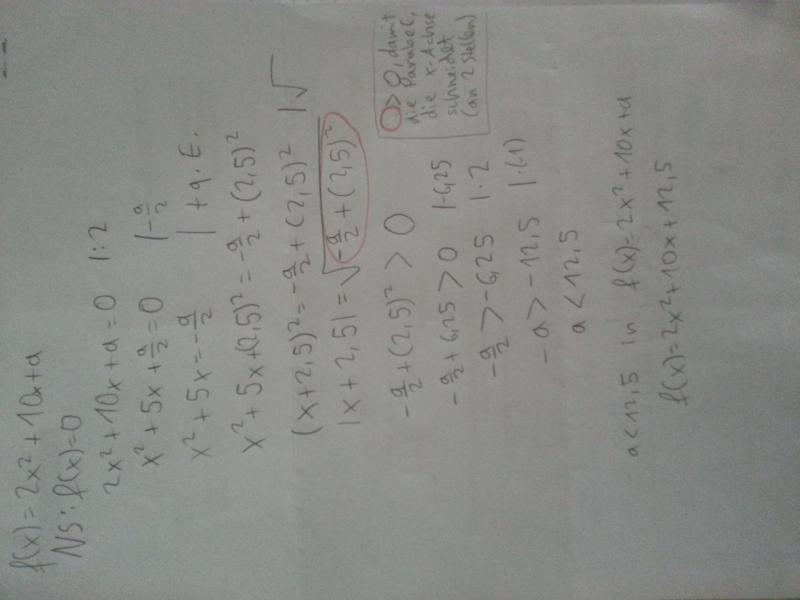 f(x) = 2x² + 10x + a
NS: f(x) = 0
2x² + 10x + a = 0 | : 2
x² + 5x + a/2 = 0 | - a/2
x² + 5x = - a/2 | + q. E.
x² + 5x + (2,5)² = - a/2 + (2,5)²
(x + 2,5)² = - a/2 + (2,5)² | √
|x + 2,5| = √(- a/2 + (2,5)²)
O > 0, damit
die Parabel,
die x-Achse
schneidet
(an 2 Stellen)
- a/2 + (2,5)² > 0
- a/2 + 6,25 > 0 | - 6,25
- a/2 > - 6,25 | · 2
- a > - 12,5 | · (-1)
a < 12,5
a < 12,5 in f(x) = 2x² + 10x + a
f(x) = 2x² + 10x + 12,5